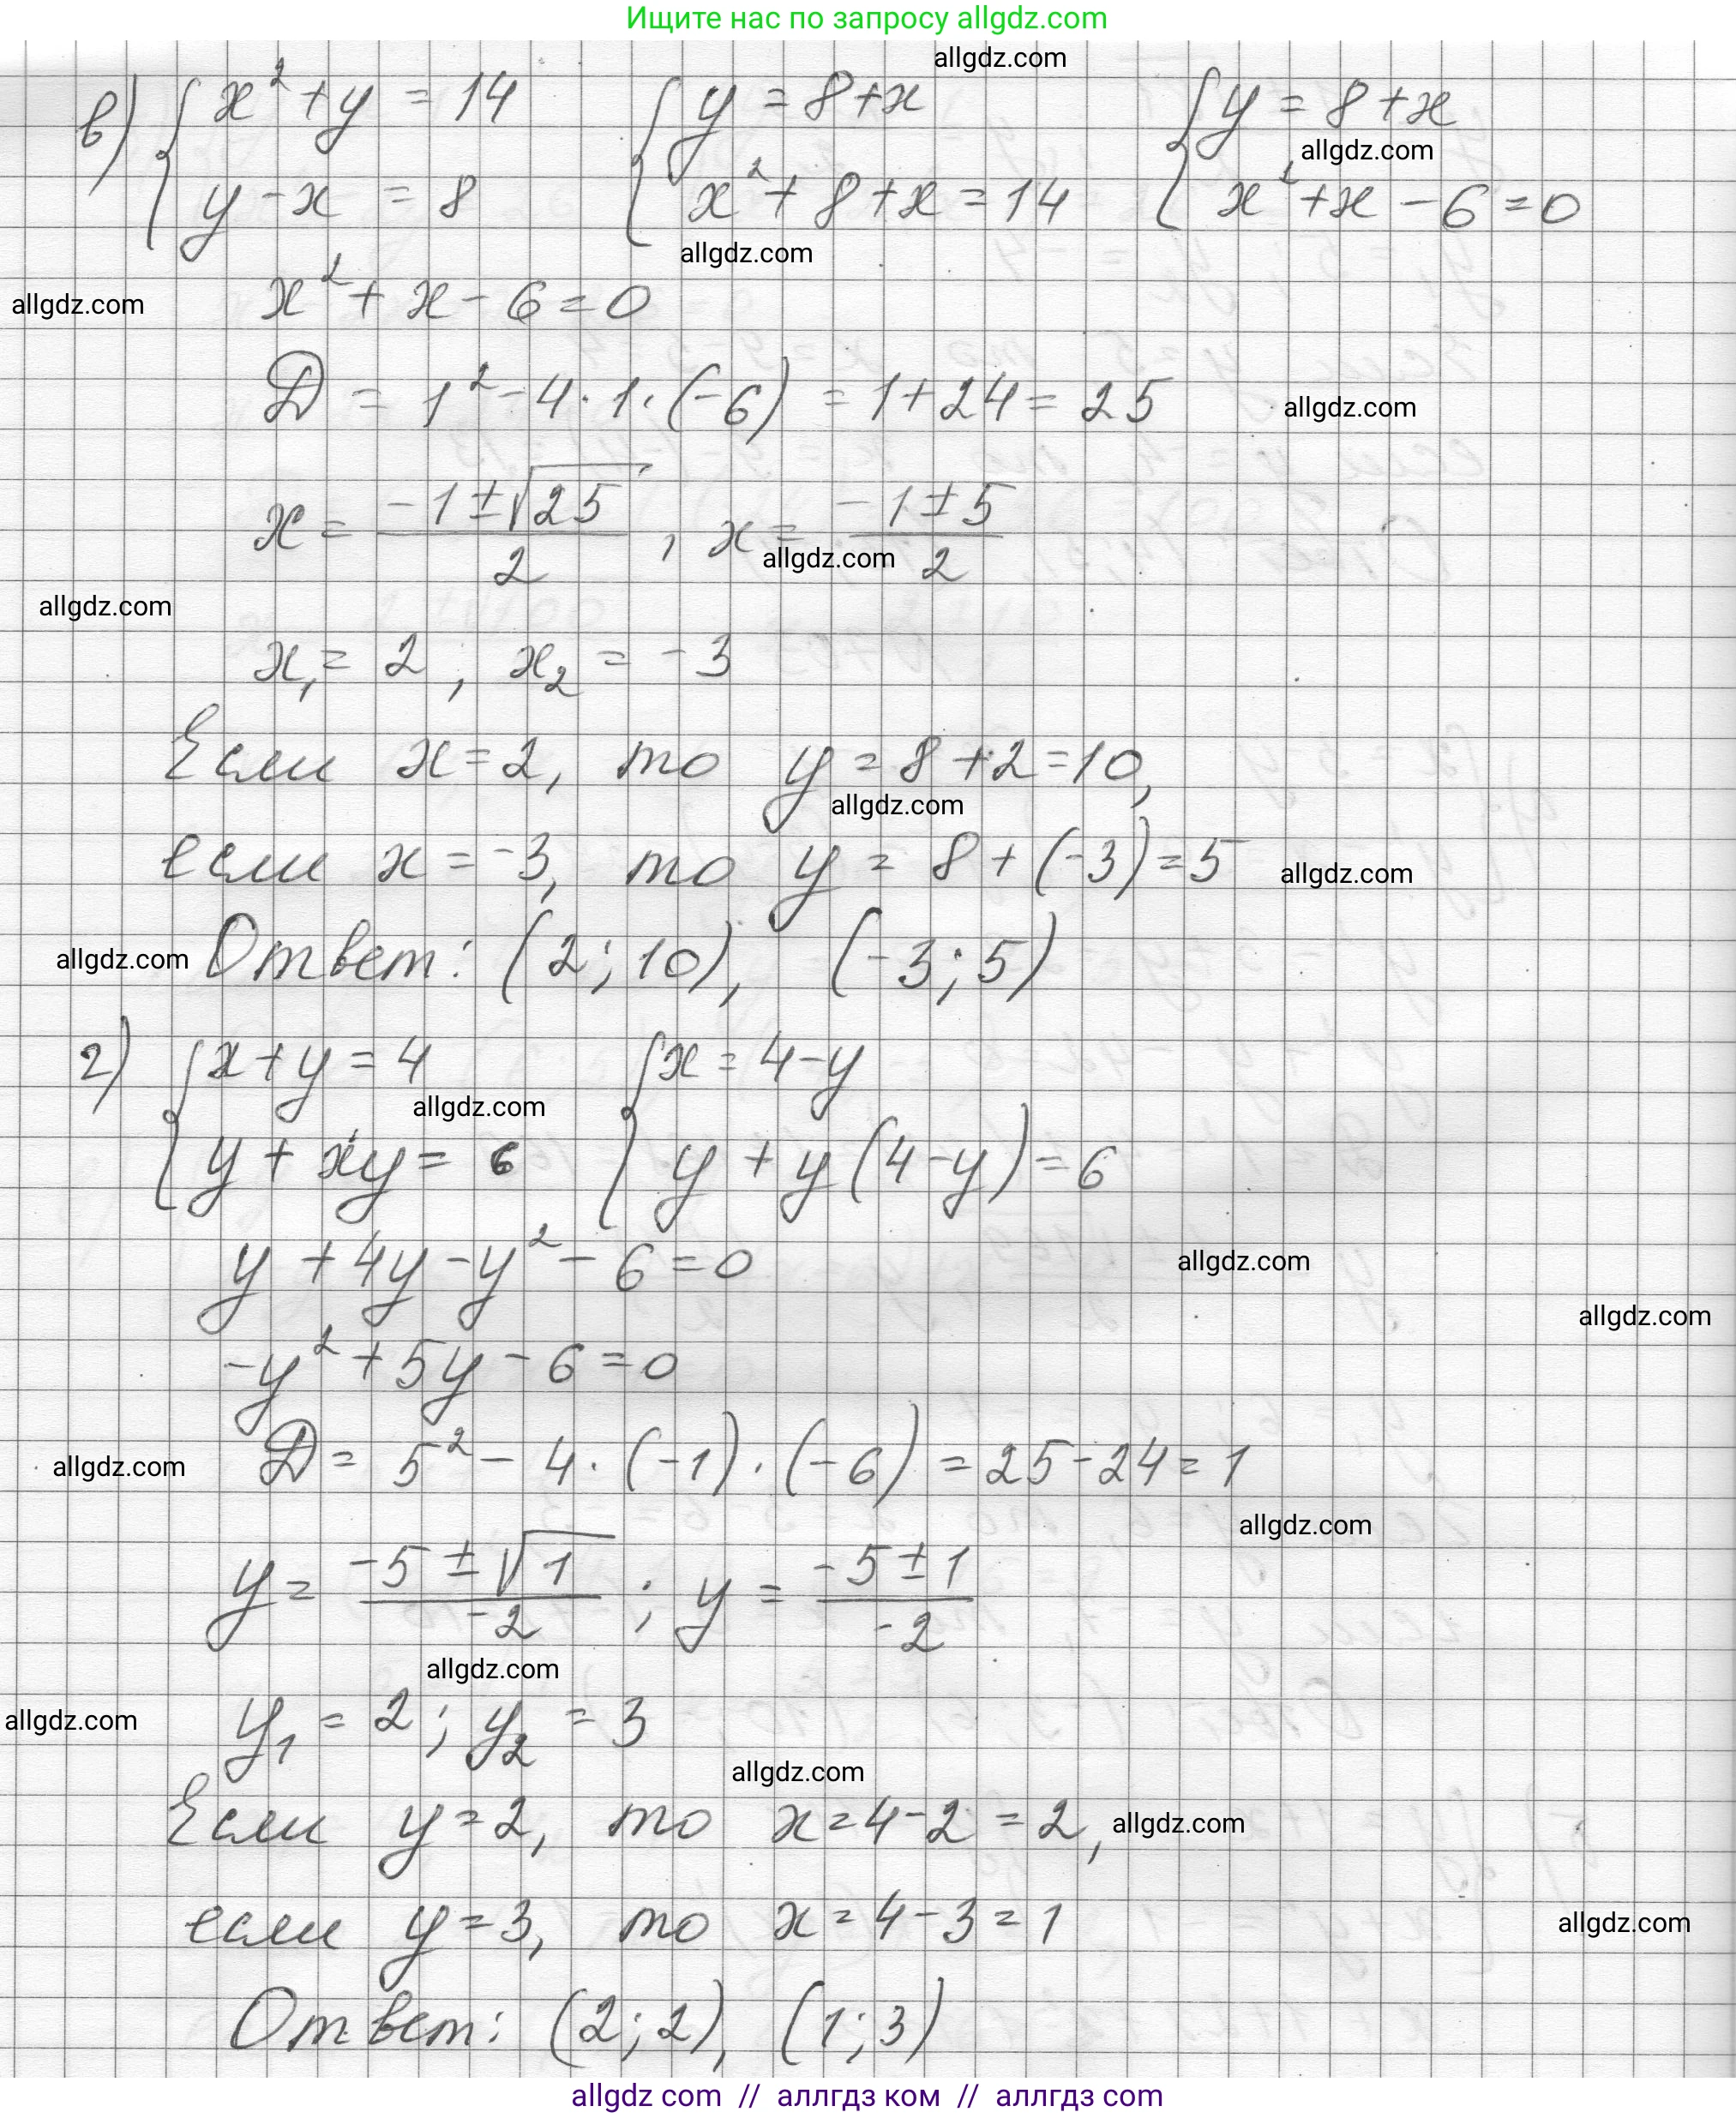 Ищите нас по запросу allgdz.com
allgdz.com
в) { x² + y = 14 { y = 8 + x { y = 8 + x
allgdz.com
y - x = 8 x² + 8 + x = 14 x² + x - 6 = 0
allgdz.com
allgdz.com x² + x - 6 = 0
D = 1² - 4 · 1 · (-6) = 1 + 24 = 25 allgdz.com
x = (-1 ± √25)/2 , x = (-1 ± 5)/2
allgdz.com
allgdz.com
x₁ = 2 ; x₂ = -3
Если x = 2, то y = 8 + 2 = 10,
allgdz.com
если x = -3, то y = 8 + (-3) = 5 allgdz.com
allgdz.com Ответ: (2; 10), (-3; 5)
г) { x + y = 4 { x = 4 - y
allgdz.com
y + xy = 6 y + y(4 - y) = 6
y + 4y - y² - 6 = 0 allgdz.com
allgdz.com
-y² + 5y - 6 = 0
allgdz.com D = 5² - 4 · (-1) · (-6) = 25 - 24 = 1
allgdz.com
y = (-5 ± √1)/-2 ; y = (-5 ± 1)/-2
allgdz.com
allgdz.com y₁ = 2 ; y₂ = 3
allgdz.com
Если y = 2, то x = 4 - 2 = 2, allgdz.com
если y = 3, то x = 4 - 3 = 1 allgdz.com
Ответ: (2; 2), (1; 3)
allgdz com // аллгдз ком // аллгдз com